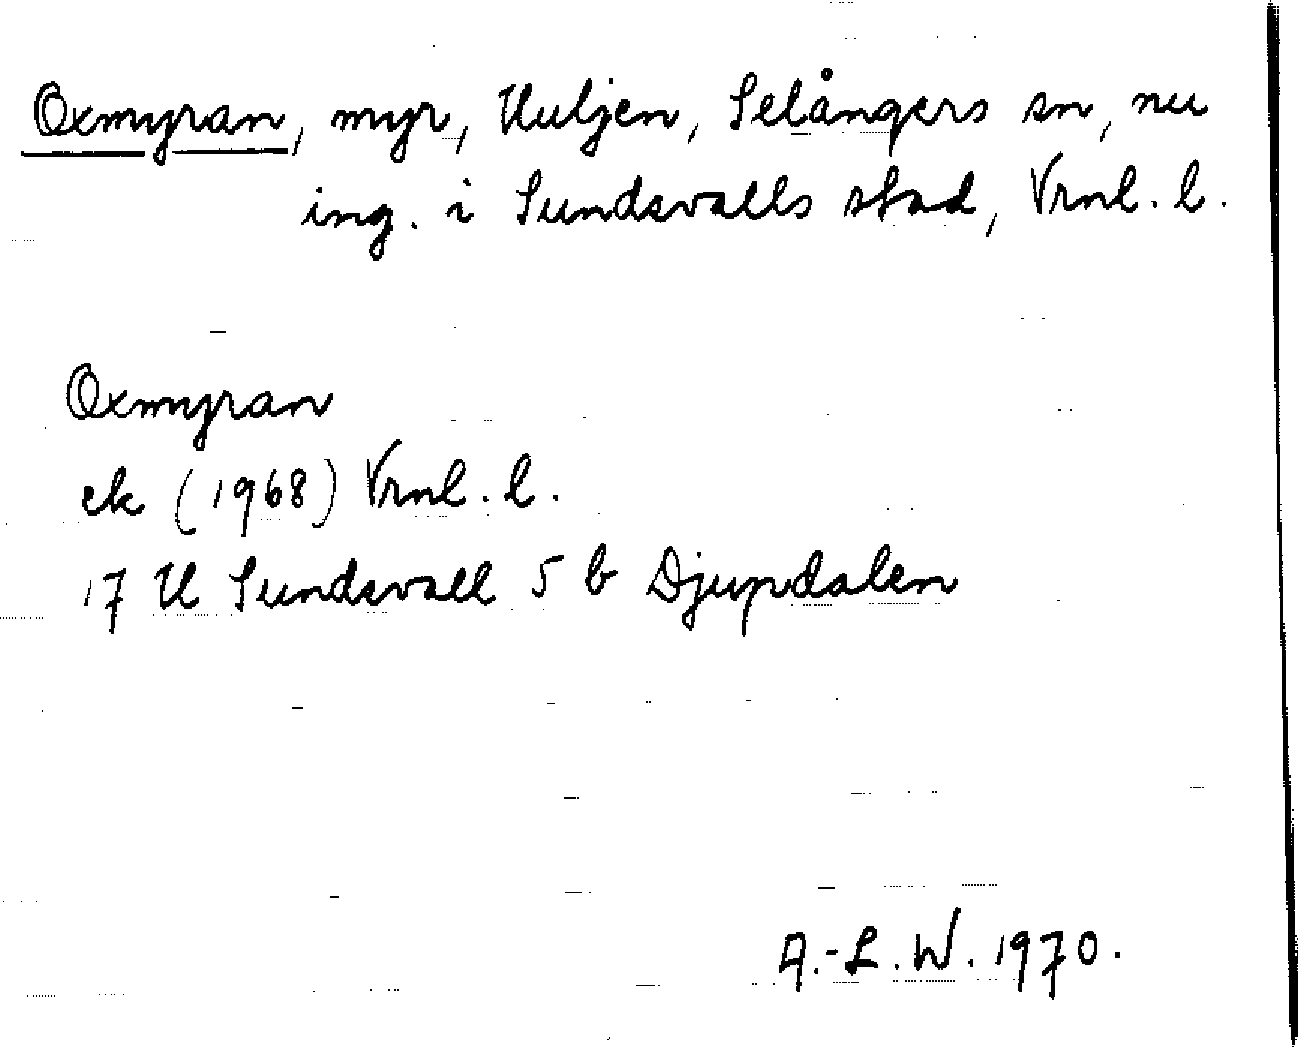 Oxmyran, myr, Huljen, Selångers sn, nu
ing. i Sundsvalls stad, Vrnl. l.
Oxmyran
ek (1968) Vrnl. l.
17 H Sundsvall 5 b Djupdalen
A.-L. W. 1970.